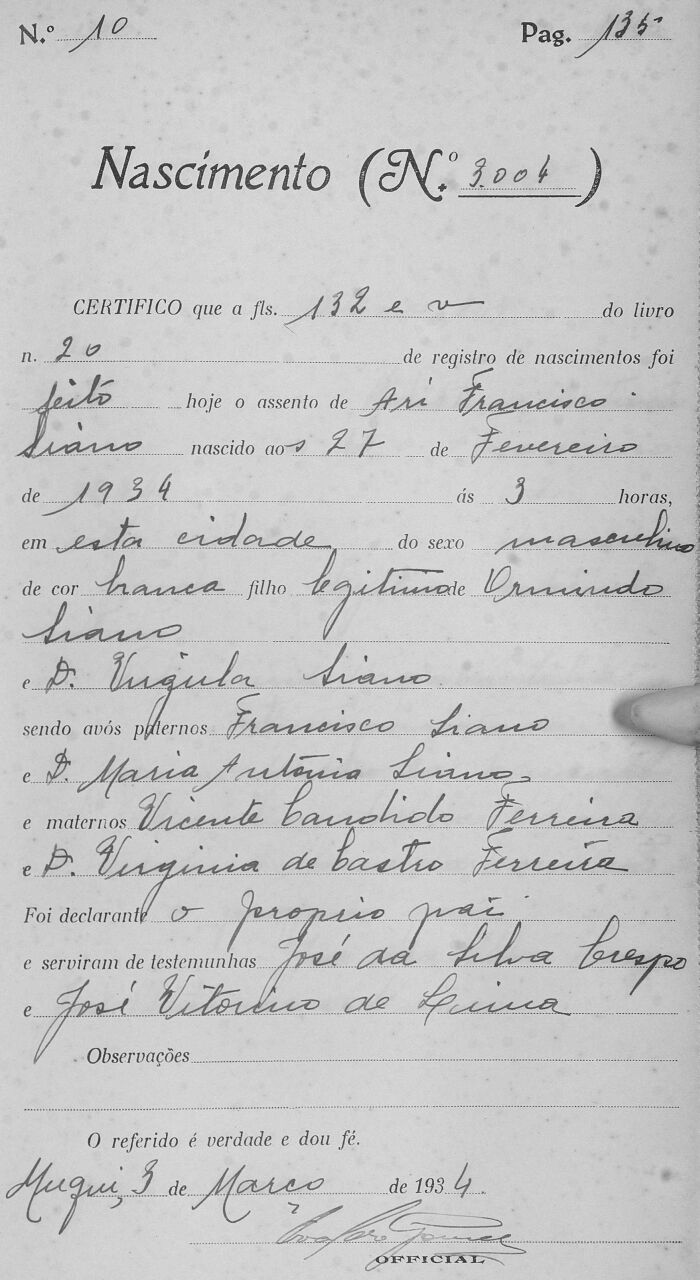 N.º 10 Pag. 135
Nascimento (N.º 3.004)
CERTIFICO que a fls. 132 e v do livro
n. 20 de registro de nascimentos foi
feito hoje o assento de Ari Francisco
Siano nascido aos 27 de Fevereiro
de 1934 ás 3 horas,
em esta cidade do sexo masculino
de cor branca filho legitimo de Ormindo
Siano
e D. Siano
sendo avós paternos Francisco Siano
e D. Maria Antônia Siano
e maternos Vicente Candido Ferreira
e D. Virginia de Castro Ferreira
Foi declarante o proprio pai
e serviram de testemunhas José da Silva Crespo
e José Vitorino de Lima
Observações
O referido é verdade e dou fé.
Muqui, 3 de Março de 1934.
OFFICIAL